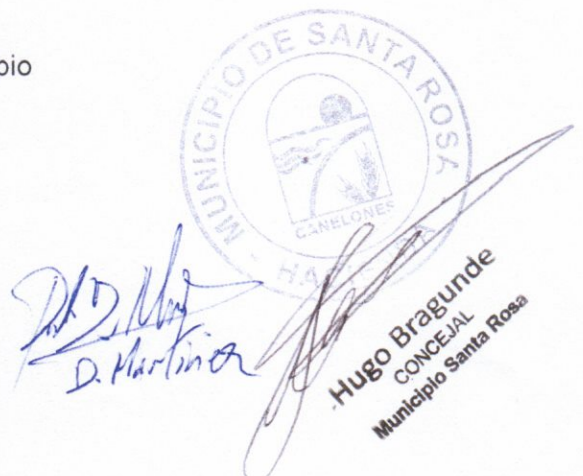 pio
MUNICIPIO DE SANTA ROSA
CANELONES
D. Martinez
Hugo Bragunde
CONCEJAL
Municipio Santa Rosa